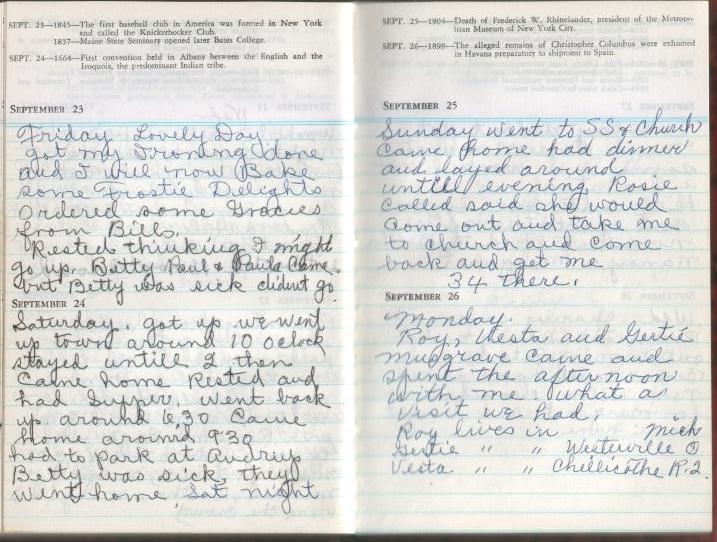 SEPT. 23—1845—The first baseball club in America was formed in New York
and called the Knickerbocker Club.
1857—Maine State Seminary opened later Bates College.
SEPT. 24—1664—First convention held in Albany between the English and the
Iroquois, the predominant Indian tribe.
SEPTEMBER 23
Friday Lovely Day
got my Ironing done
and I will now Bake
some Frostie Delights
Ordered some Grocies
from Bills.
Rested thinking I might
go up. Betty Paul & Paula Came.
but Betty was sick didnt go.
SEPTEMBER 24
Saturday. got up we went
up town around 10 oclock
stayed untill 2 then
Came home Rested and
had Supper. Went back
up around 6,30 Came
home around 9.30
had to park at Audrys
Betty was sick, they
went home Sat night
SEPT. 25—1904—Death of Frederick W. Rhinelander, president of the Metropol-
itan Museum of New York City.
SEPT. 26—1898—The alleged remains of Christopher Columbus were exhumed
in Havana preparatory to shipment to Spain.
SEPTEMBER 25
Sunday went to SS & Church
came home had dinner
and layed around
untill evening Rosie
called said she would
come out and take me
to church and come
back and get me
34 there.
SEPTEMBER 26
Monday.
Roy, Vesta and Gertie
musgrave came and
spent the afternoon
with me. what a
visit we had.
Roy lives in Mich
Gertie " " Westerville O
Vesta " " Chillicothe R.2.